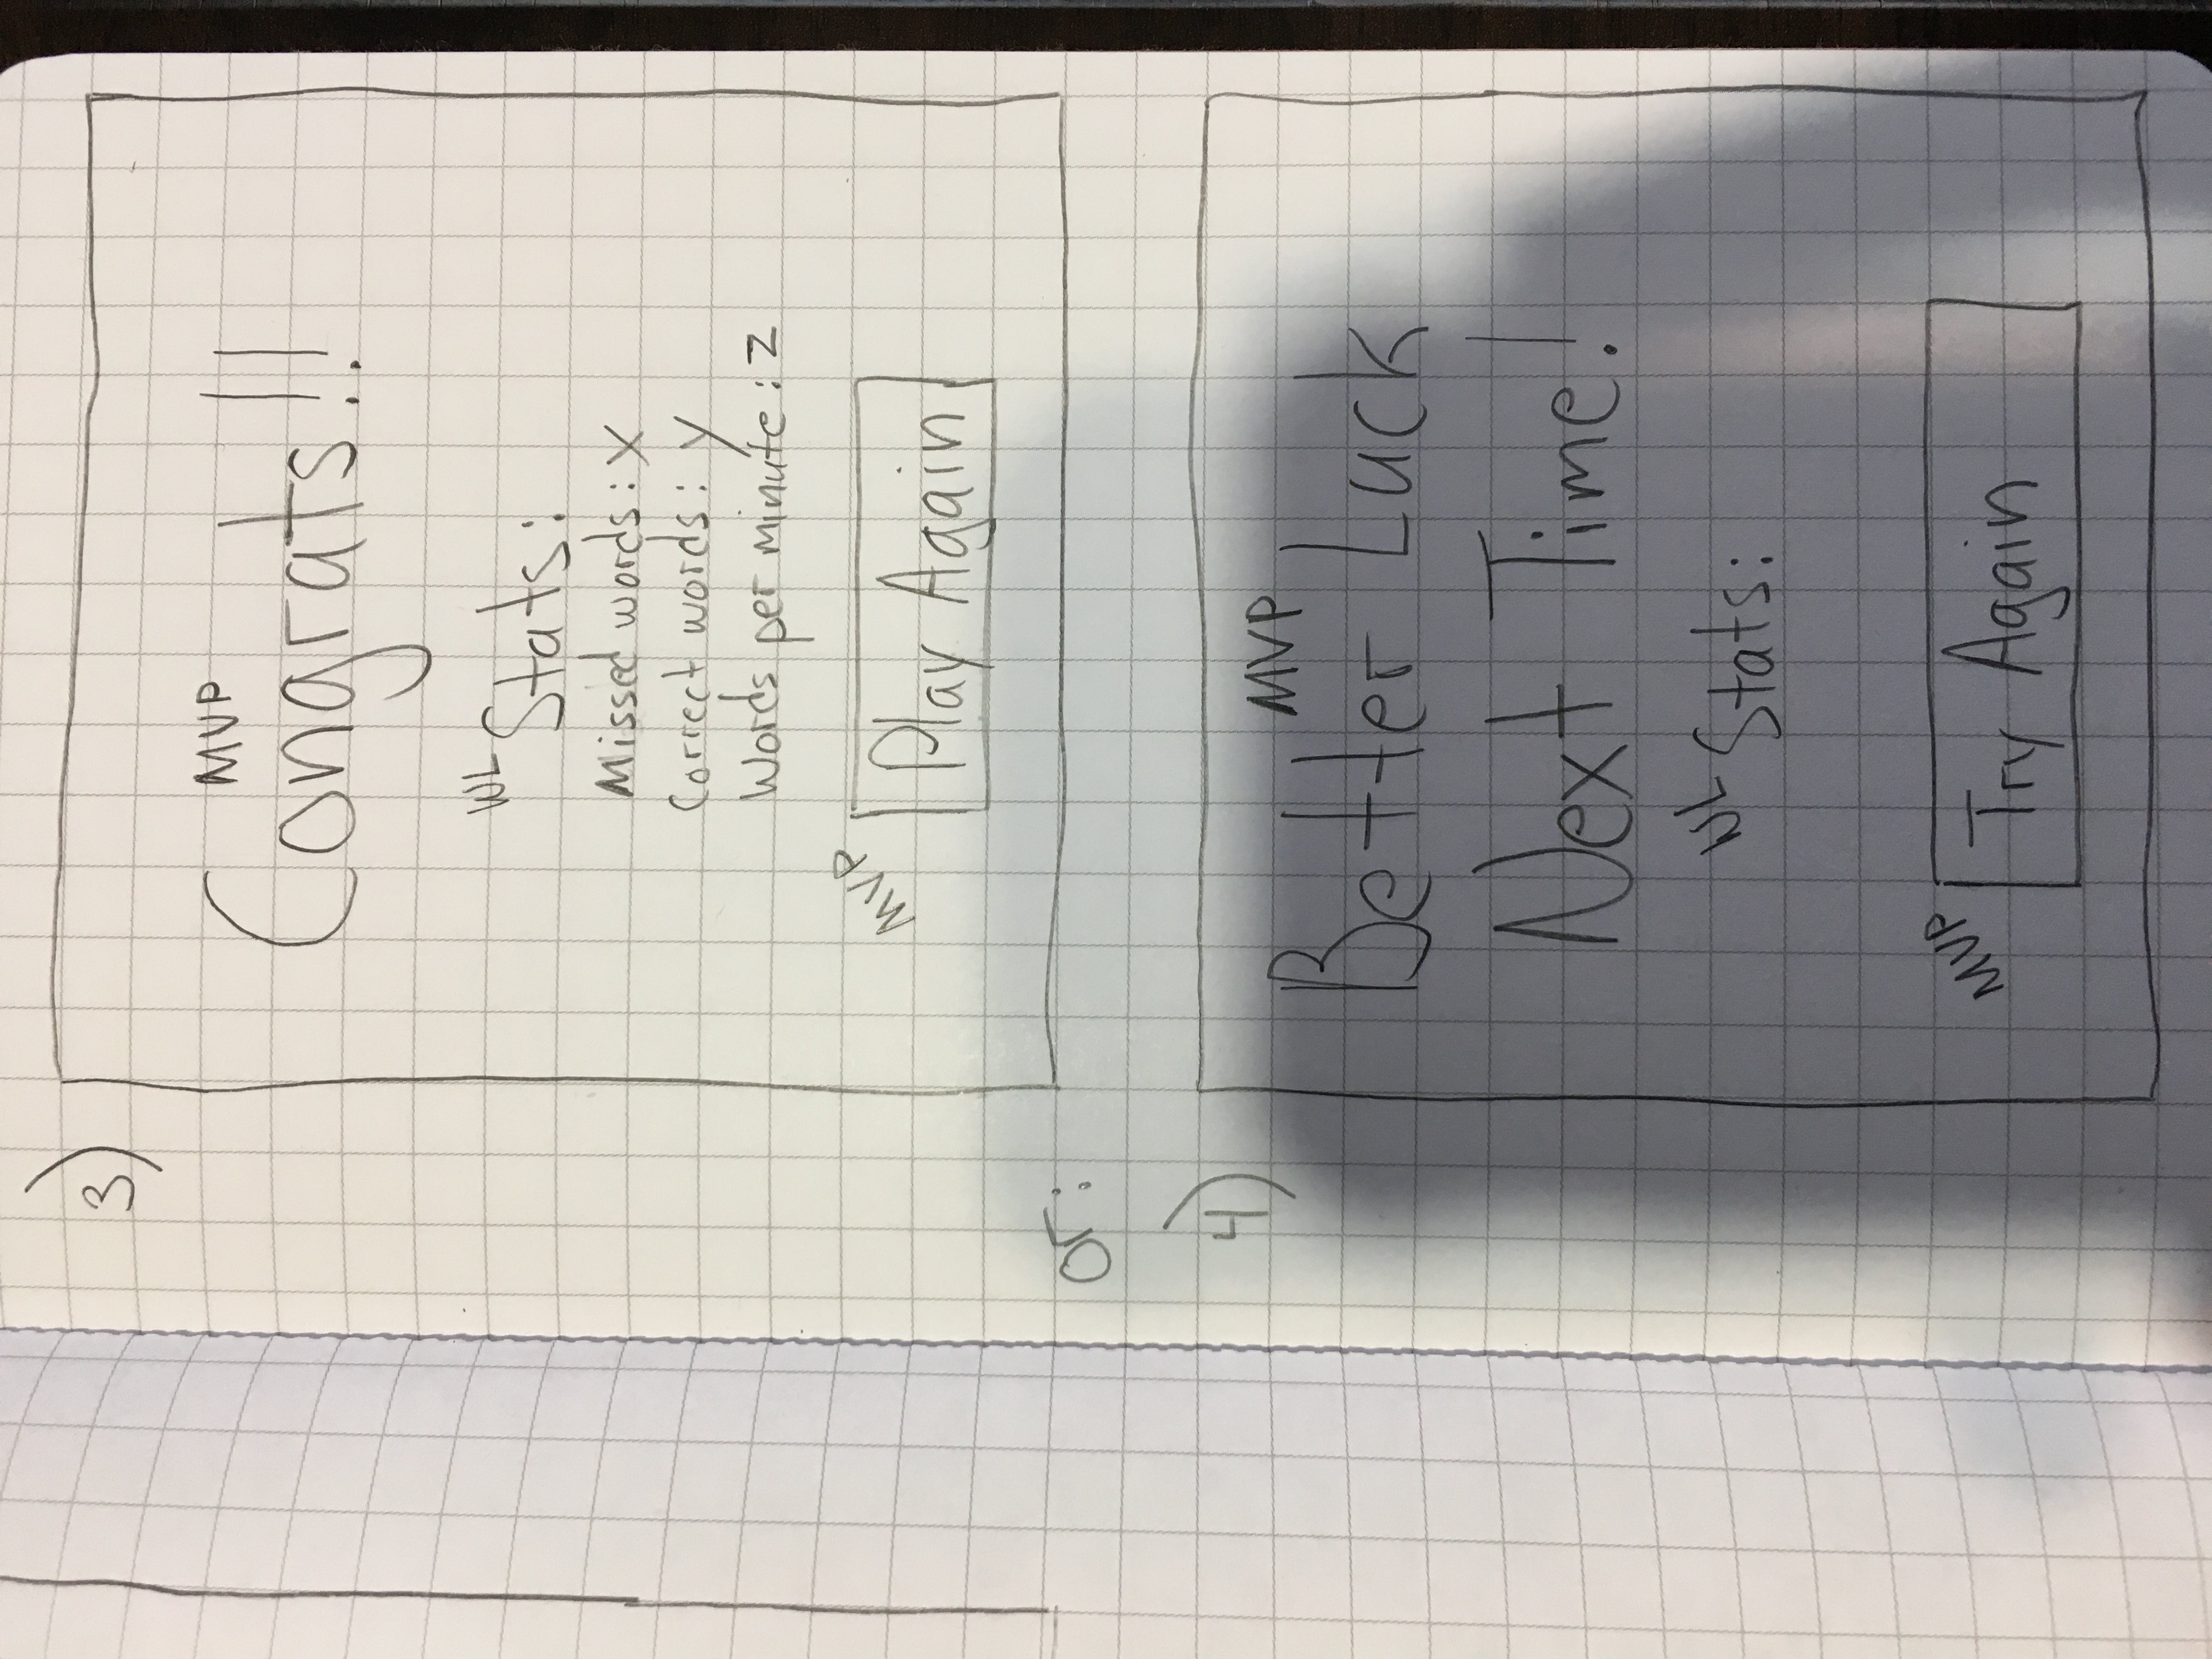 3)
MVP
Congrats!!
WL Stats:
Missed words: x
Correct words: y
Words per minute: z
MVP Play Again
or:
4)
MVP
Better Luck
Next Time!
WL Stats:
MVP Try Again